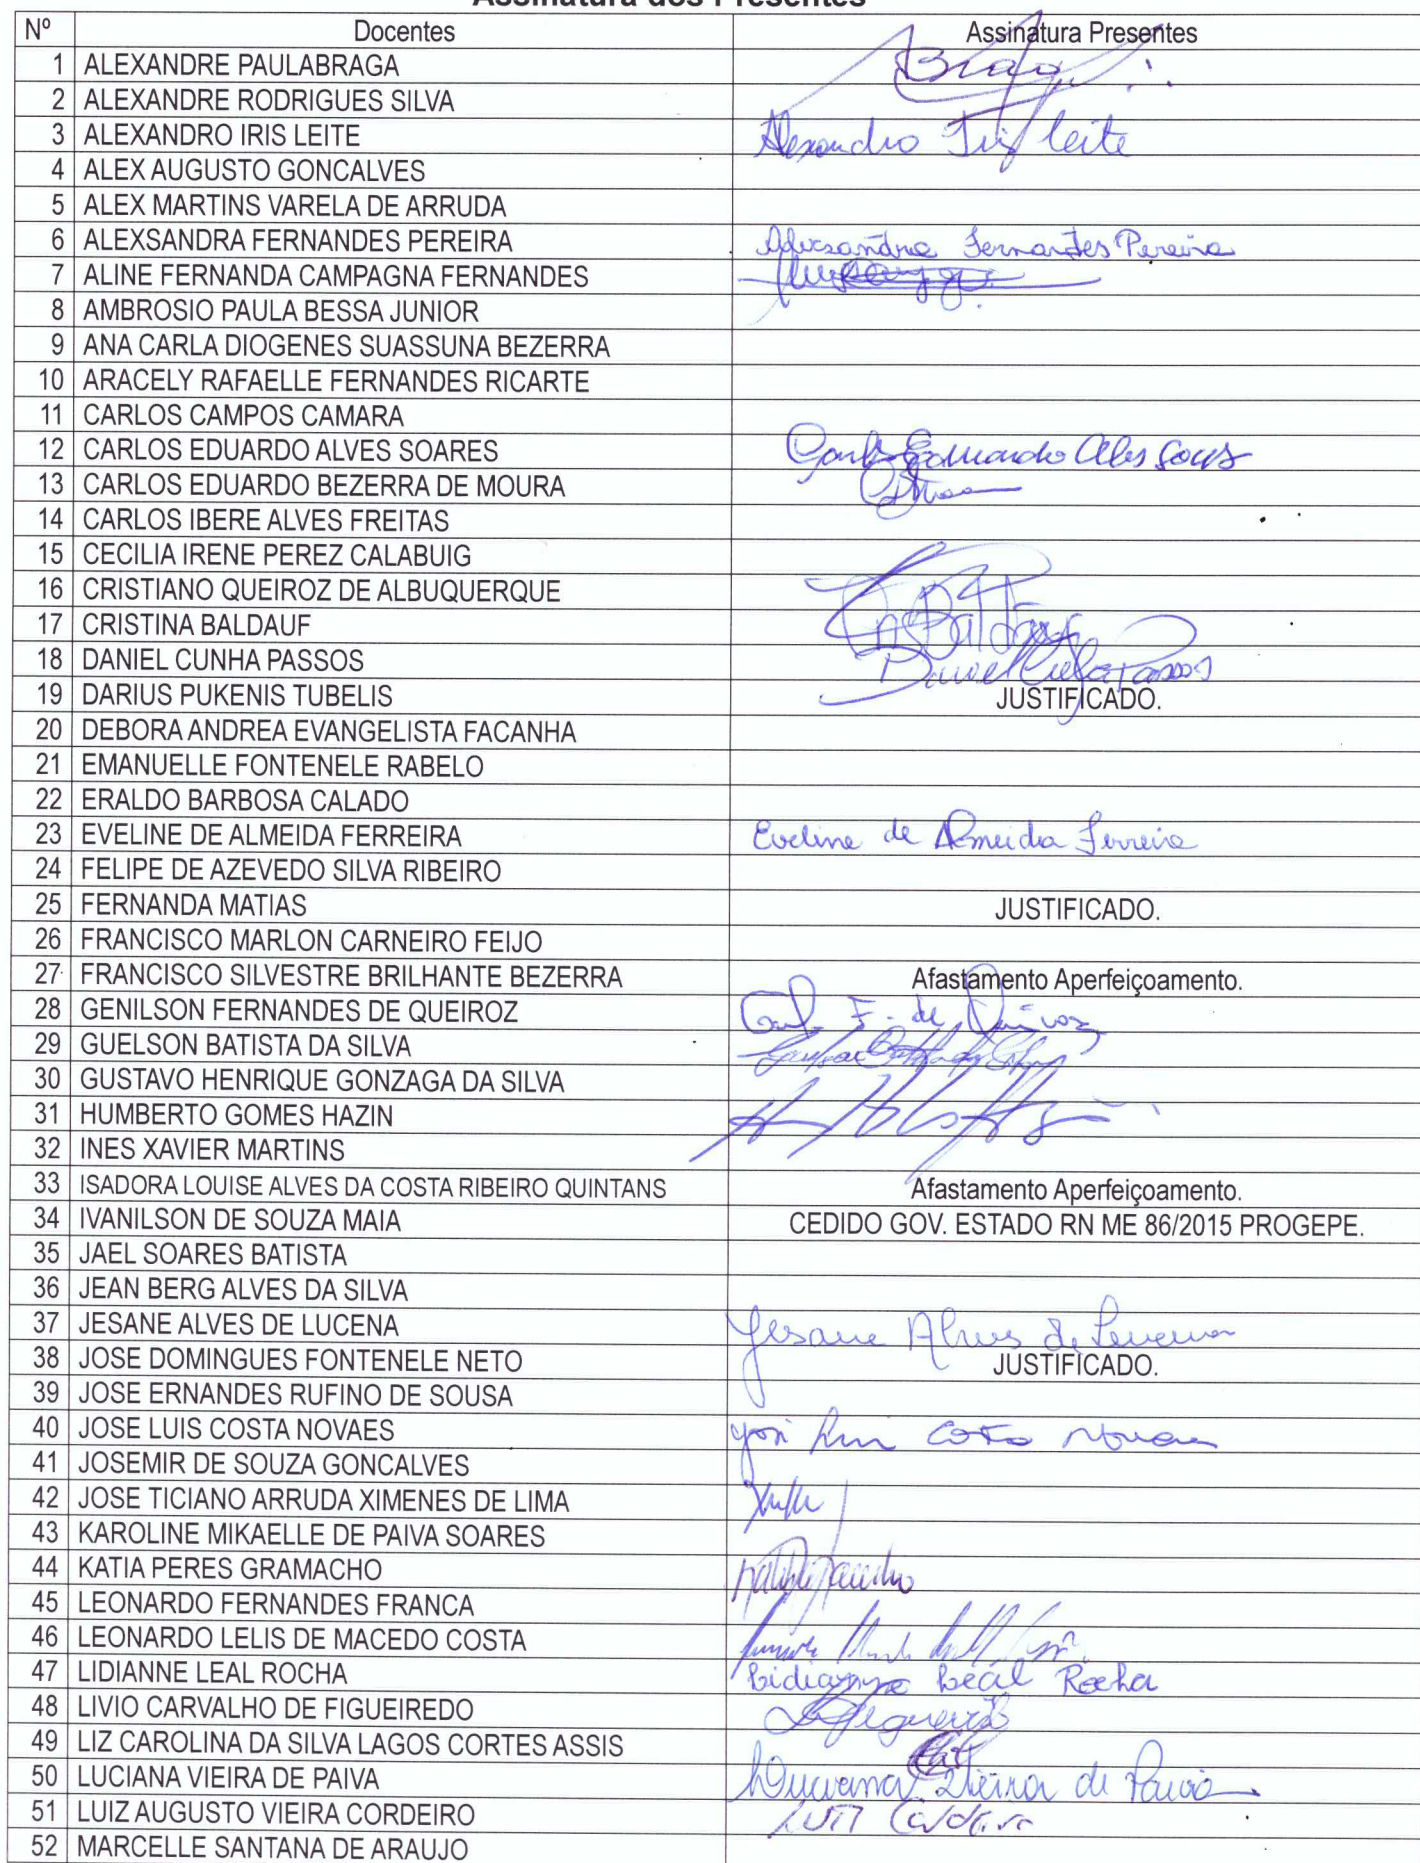 Assinatura dos Presentes
Nº Docentes Assinatura Presentes
1 ALEXANDRE PAULABRAGA Braga
2 ALEXANDRE RODRIGUES SILVA
3 ALEXANDRO IRIS LEITE Alexandro Iris Leite
4 ALEX AUGUSTO GONCALVES
5 ALEX MARTINS VARELA DE ARRUDA
6 ALEXSANDRA FERNANDES PEREIRA Alexsandra Fernandes Pereira
7 ALINE FERNANDA CAMPAGNA FERNANDES
8 AMBROSIO PAULA BESSA JUNIOR
9 ANA CARLA DIOGENES SUASSUNA BEZERRA
10 ARACELY RAFAELLE FERNANDES RICARTE
11 CARLOS CAMPOS CAMARA
12 CARLOS EDUARDO ALVES SOARES Carlos Eduardo Alves Soares
13 CARLOS EDUARDO BEZERRA DE MOURA
14 CARLOS IBERE ALVES FREITAS
15 CECILIA IRENE PEREZ CALABUIG
16 CRISTIANO QUEIROZ DE ALBUQUERQUE
17 CRISTINA BALDAUF Cris Baldauf
18 DANIEL CUNHA PASSOS Daniel Cunha Passos
19 DARIUS PUKENIS TUBELIS JUSTIFICADO.
20 DEBORA ANDREA EVANGELISTA FACANHA
21 EMANUELLE FONTENELE RABELO
22 ERALDO BARBOSA CALADO
23 EVELINE DE ALMEIDA FERREIRA Eveline de Almeida Ferreira
24 FELIPE DE AZEVEDO SILVA RIBEIRO
25 FERNANDA MATIAS JUSTIFICADO.
26 FRANCISCO MARLON CARNEIRO FEIJO
27 FRANCISCO SILVESTRE BRILHANTE BEZERRA Afastamento Aperfeiçoamento.
28 GENILSON FERNANDES DE QUEIROZ F. de Queiroz
29 GUELSON BATISTA DA SILVA Guelson Batista da Silva
30 GUSTAVO HENRIQUE GONZAGA DA SILVA
31 HUMBERTO GOMES HAZIN
32 INES XAVIER MARTINS
33 ISADORA LOUISE ALVES DA COSTA RIBEIRO QUINTANS Afastamento Aperfeiçoamento.
34 IVANILSON DE SOUZA MAIA CEDIDO GOV. ESTADO RN ME 86/2015 PROGEPE.
35 JAEL SOARES BATISTA
36 JEAN BERG ALVES DA SILVA
37 JESANE ALVES DE LUCENA Jesane Alves de Lucena
38 JOSE DOMINGUES FONTENELE NETO JUSTIFICADO.
39 JOSE ERNANDES RUFINO DE SOUSA
40 JOSE LUIS COSTA NOVAES José Luis Costa Novaes
41 JOSEMIR DE SOUZA GONCALVES
42 JOSE TICIANO ARRUDA XIMENES DE LIMA
43 KAROLINE MIKAELLE DE PAIVA SOARES
44 KATIA PERES GRAMACHO
45 LEONARDO FERNANDES FRANCA
46 LEONARDO LELIS DE MACEDO COSTA
47 LIDIANNE LEAL ROCHA Lidianne Leal Rocha
48 LIVIO CARVALHO DE FIGUEIREDO
49 LIZ CAROLINA DA SILVA LAGOS CORTES ASSIS
50 LUCIANA VIEIRA DE PAIVA Luciana Vieira de Paiva
51 LUIZ AUGUSTO VIEIRA CORDEIRO Luiz Cordeiro
52 MARCELLE SANTANA DE ARAUJO